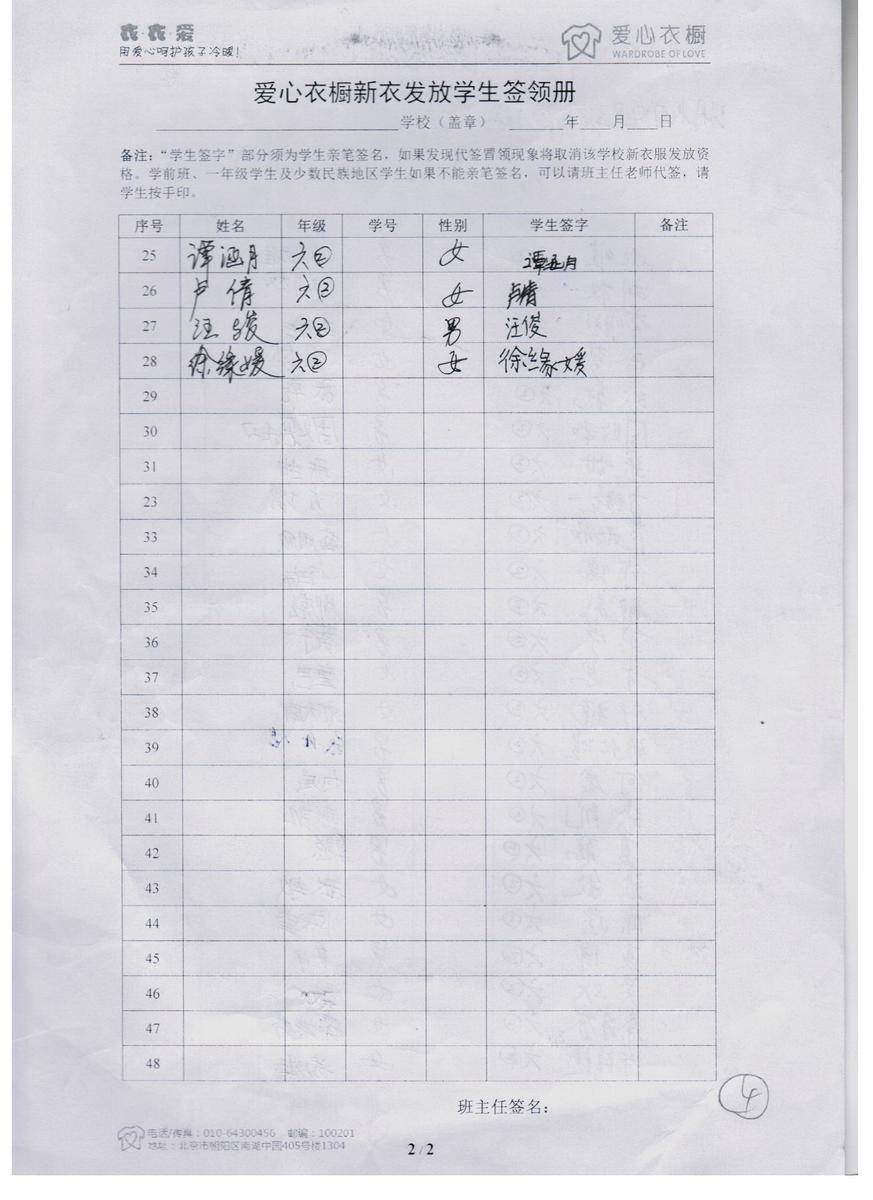 衣·衣·爱
用爱心呵护孩子冷暖!
爱心衣橱
WARDROBE OF LOVE
爱心衣橱新衣发放学生签领册
学校（盖章） 年 月 日
备注：“学生签字”部分须为学生亲笔签名，如果发现代签冒领现象将取消该学校新衣服发放资
格。学前班、一年级学生及少数民族地区学生如果不能亲笔签名，可以请班主任老师代签，请
学生按手印。
序号 姓名 年级 学号 性别 学生签字 备注
25 谭涵月 六② 女 谭涵月
26 卢倩 六② 女 卢倩
27 汪骏 六② 男 汪俊
28 徐缘媛 六② 女 徐缘媛
29
30
31
23
33
34
35
36
37
38
39
40
41
42
43
44
45
46
47
48
班主任签名：
4
电话/传真：010-64300456 邮编：100201
地址：北京市朝阳区南湖中园405号楼1304
2 / 2